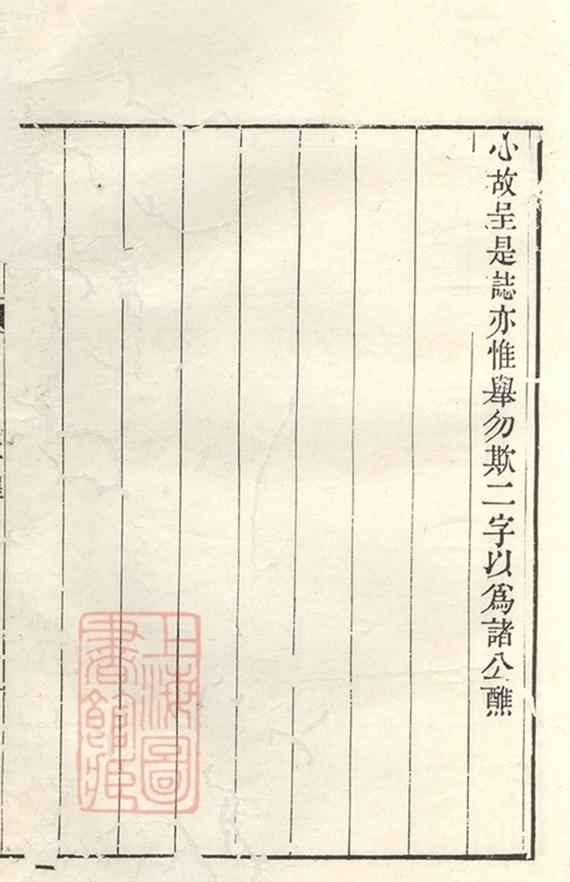 心故呈是誌亦惟舉勿欺二字以為諸公醮
上海圖書館藏